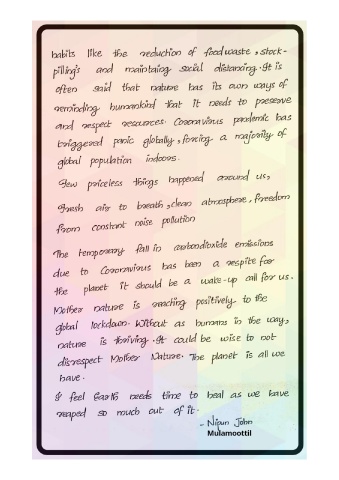 habits like the reduction of food waste, stock-
pilling's and maintaing social distancing. It is
often said that nature has its own ways of
reminding humankind that it needs to preserve
and respect resources. Coronavirus pandemic has
triggered panic globally, forcing a majority of
global population indoors.
Few priceless things happened around us,
Fresh air to breath, clean atmosphere, freedom
from constant noise pollution
The temporary fall in carbondioxide emissions
due to Coronavirus has been a respite for
the planet it should be a wake-up call for us.
Mother nature is reacting positively to the
global lockdown. Without as humans in the way,
nature is thriving. It could be wise to not
disrespect Mother Nature. The planet is all we
have.
I feel Earth needs time to heal as we have
reaped so much out of it.
- Nipun John
Mulamoottil